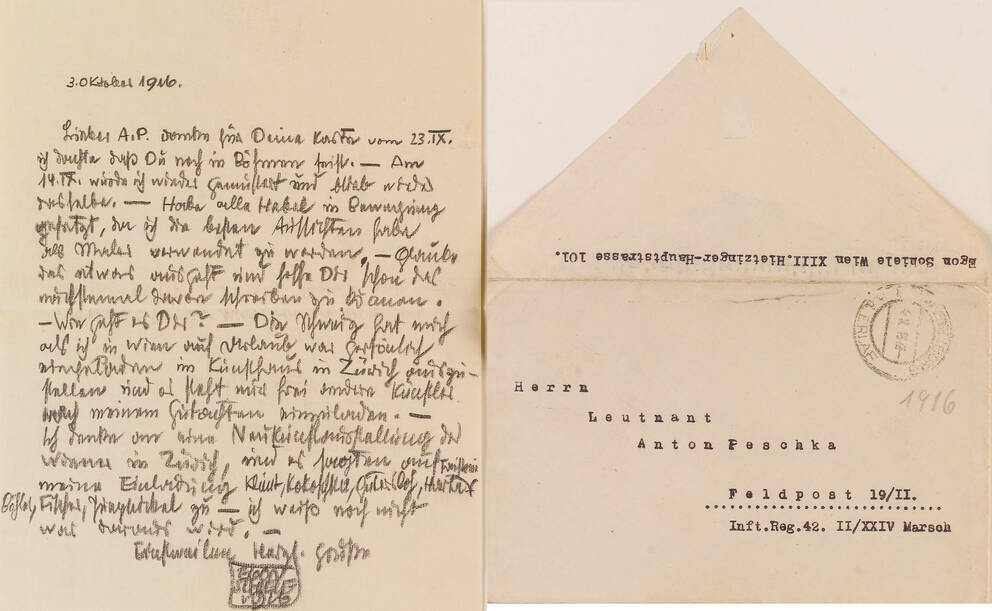 3. Oktober 1916.
Lieber A.P. danke für Deine Karte vom 23.IX.
ich dachte daß Du noch in Böhmen seist. — Am
14.IX. wurde ich wieder gemustert und blieb wieder
dasselbe. — Habe alle Hebel in Bewegung
gesetzt, da ich die besten Aussichten habe
als Maler verwendet zu werden, — Glaube
das etwas ausgeht und hoffe Dir schon das
nächstemal davon schreiben zu können.
— Wie geht es Dir? — Die Schweiz hat mich
als ich in Wien auf Urlaub war persönlich
eingeladen im Kunsthaus in Zürich auszu-
stellen und es steht mir frei andere Künstler
nach meinem Gutachten einzuladen. —
Ich denke an eine Neukunstausstellung der
Wiener in Zürich, und es sagten auf
meine Einladung Klimt, Kokoschka, Gütersloh, Harta
Fischer, zu — ich weiß noch nicht
was daraus wird. —
Einstweilen herzl. Grüße
EGON
SCHIELE
1916
Egon Schiele Wien XIII.Hietzinger-Hauptstrasse 101.
1916
Herrn
Leutnant
Anton Peschka
Feldpost 19/II.
Inft.Reg.42. II/XXIV Marsch